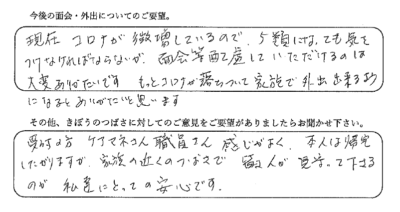 今後の面会・外出についてのご要望。
現在 コロナが微増しているので、5類になっても気を
つけなければならないが、面会等配慮していただけるのは
大変ありがたいです もっとコロナが落ちついて家族で外出出来る様
になるとありがたいと思います
その他、きぼうのつばさに対してのご意見をご要望がありましたらお聞かせ下さい。
受付の方 ケアマネさん 職員さん 感じがよく、本人は帰宅
したがりますが、家族の近くのつばさで 職人が見守って下さる
のが 私達にとっての安心です。